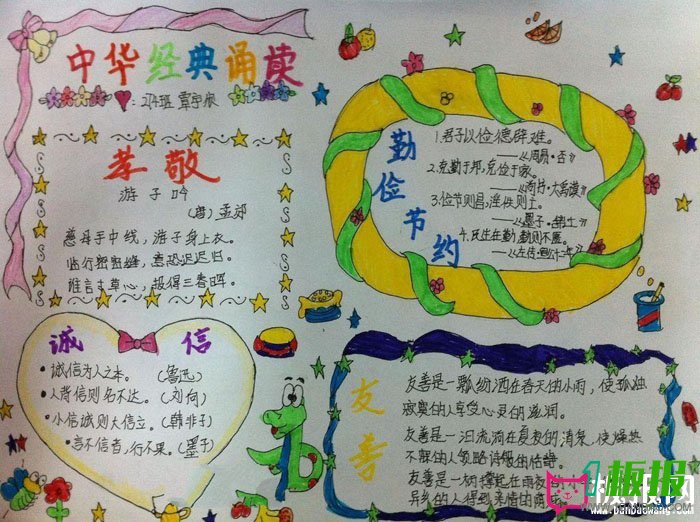 中华经典诵读
孝敬
游子吟
(唐) 孟郊
慈母手中线，游子身上衣。
临行密密缝，意恐迟迟归。
谁言寸草心，报得三春晖。
勤俭节约
1.君子以俭德辟难。
——《周易·否》
2.克勤于邦，克俭于家。
——《尚书·大禹谟》
3.俭节则昌，淫佚则亡。
——《墨子·辞过》
4.民生在勤，勤则不匮。
——《左传·宣公十二年》
诚信
诚信为人之本。（鲁迅）
人背信则名不达。（刘向）
小信诚则大信立。（韩非子）
言不信者，行不果。（墨子）
友善
友善是一飘洒在春天的小雨，使孤独
寂寞的人享受心灵的滋润。
友善是一汩流淌在夏夜的清泉，使燥热
不解的人
友善是一柄撑起在雨夜
异乡的人得到亲情的
1板报
www.banbaowang.com